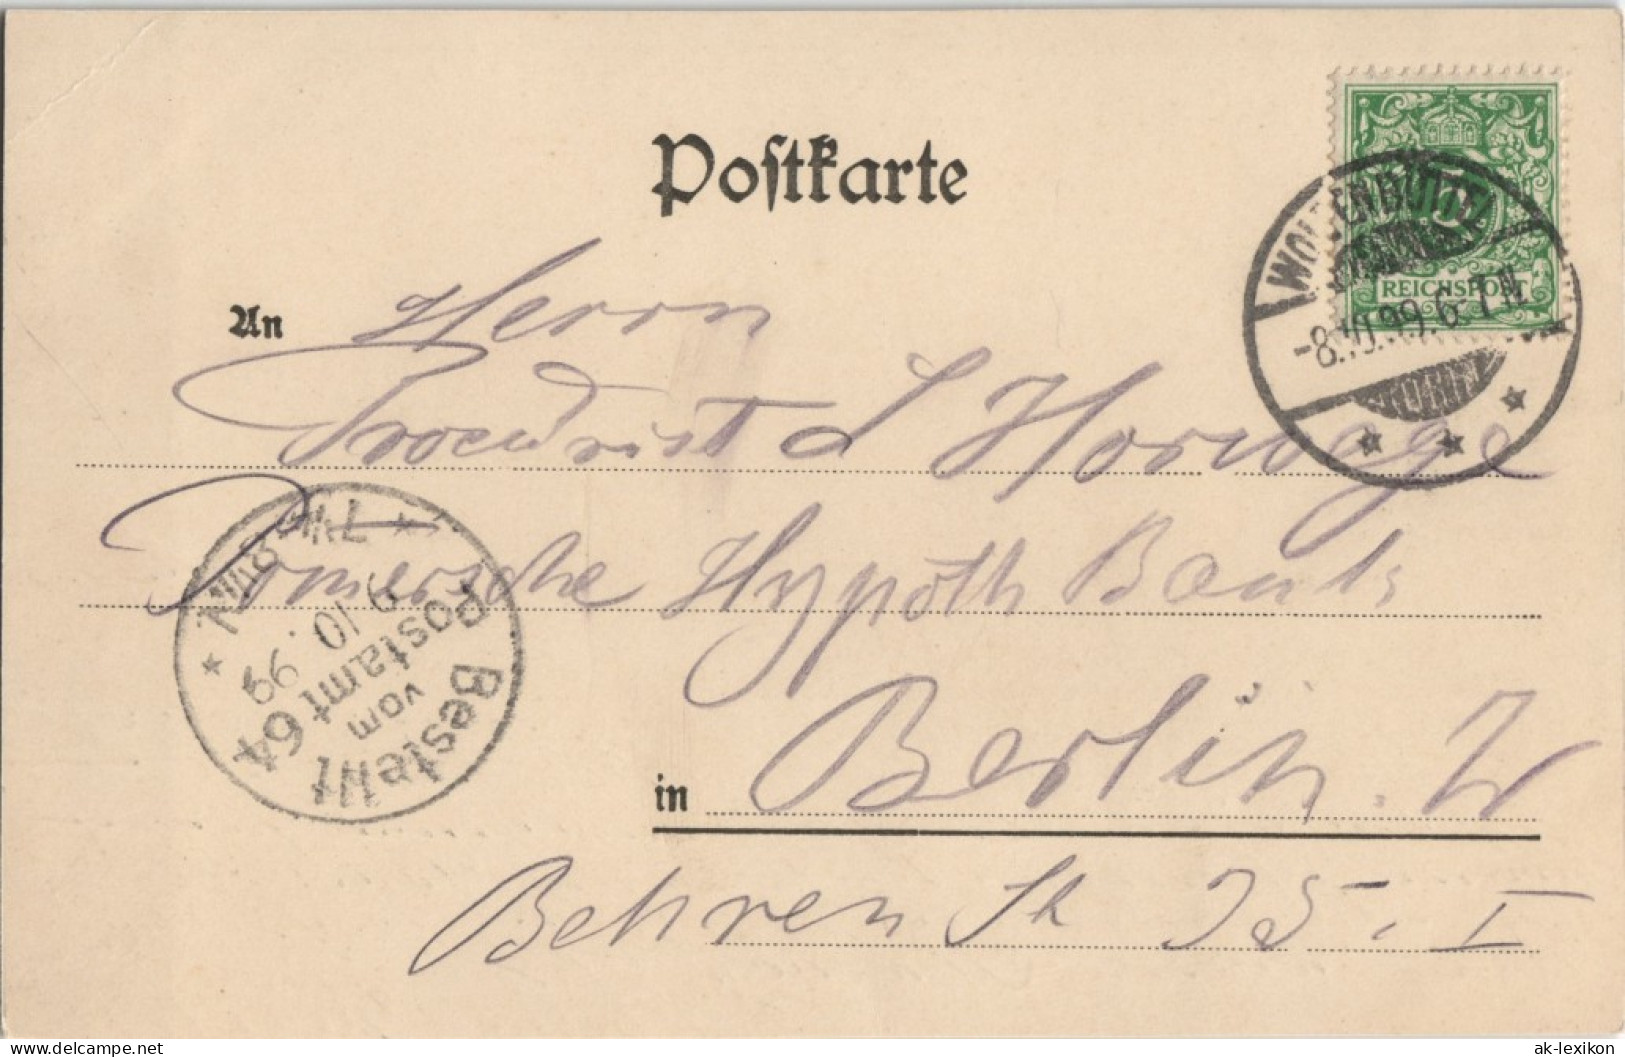 Postkarte
REICHSPOST
WOLFENBÜTTEL
-8.10.99.6-7N.
An Herrn
Procurist L Horwage
Pomersche Hypoth Bank
in Berlin. W
Behren St 35. I
Bestellt
vom
Postamt 64
9.10.99
www.delcampe.net
ak-lexikon